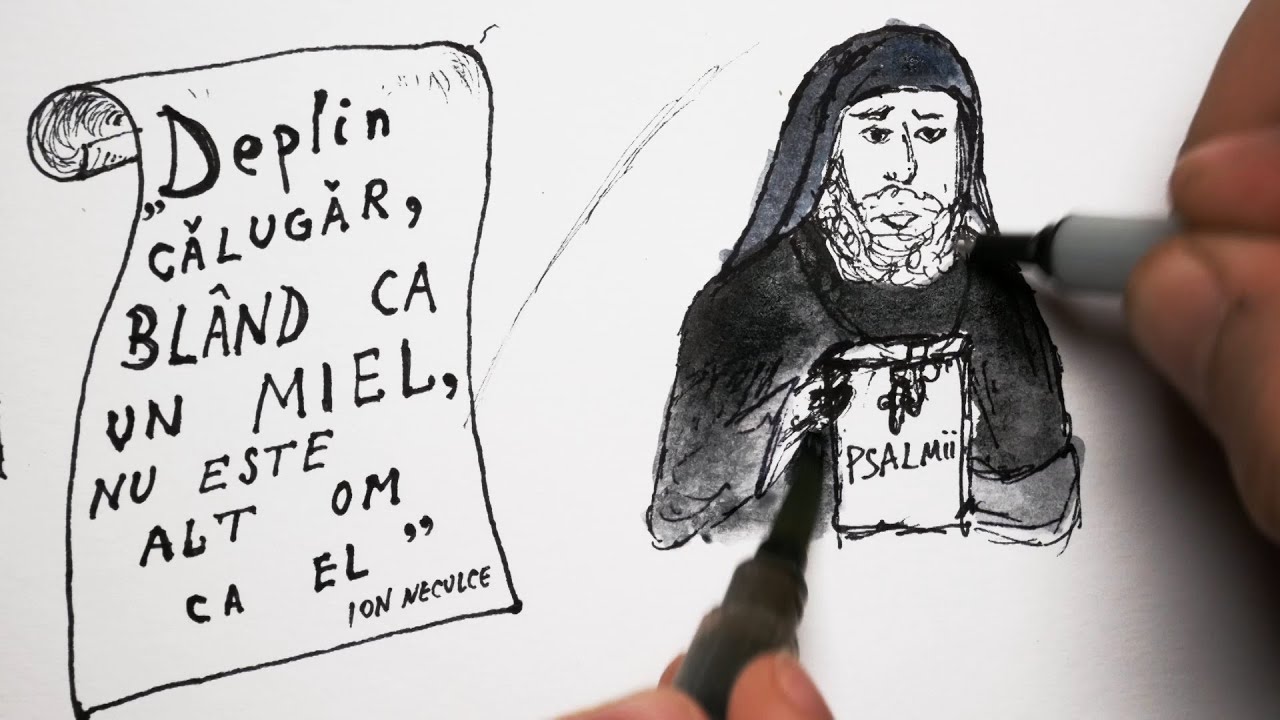 „Deplin
CĂLUGĂR,
BLÂND CA
UN MIEL,
NU ESTE
ALT OM
CA EL”
ION NECULCE
PSALMII